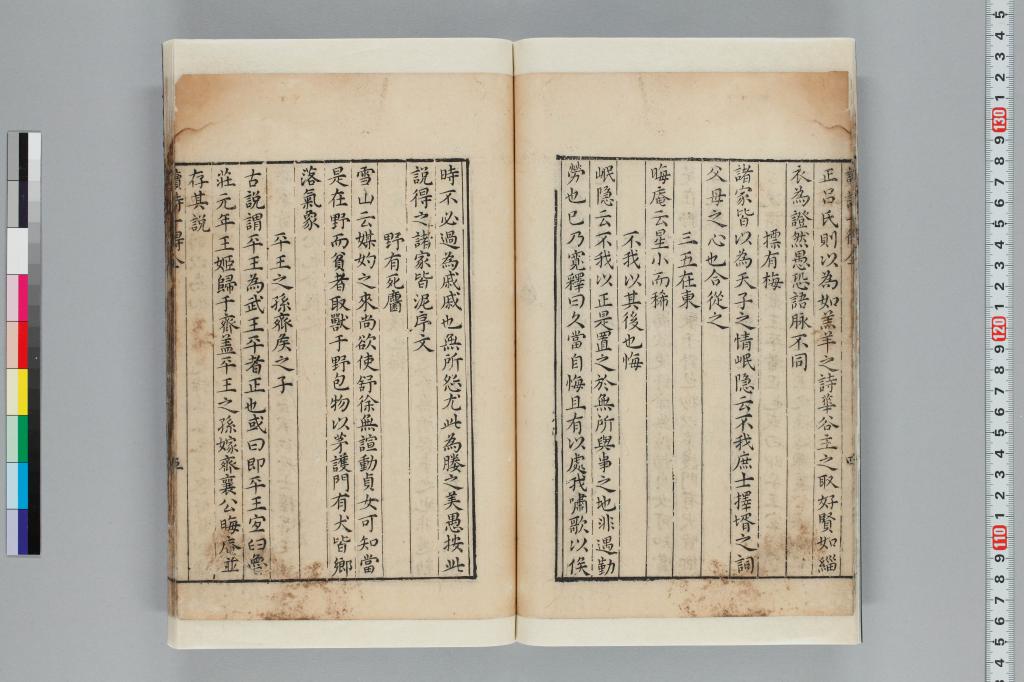 正呂氏則以為如羔羊之詩華谷主之取好賢如緇
衣為證然愚恐語脉不同
摽有梅
諸家皆以為天子之情岷隠云不我庶士擇壻之詞
父母之心也合從之
三五在東
晦庵云星小而稀
不我以其後也悔
岷隠云不我以正是置之於無所與事之地非遇勤
勞也已乃寛釋曰久當自悔且有以處我嘯歌以俟
時不必過為戚戚也無所怨尤此為媵之美愚按此
說得之諸家皆泥序文
野有死麕
雪山云媒妁之來尚欲使舒徐無諠動貞女可知當
是在野而貧者取獸于野包物以茅護門有犬皆鄉
落氣象
平王之孫齊矦之子
古說謂平王為武王平者正也或曰即平王宜臼魯
莊元年王姬歸于齊盖平王之孫嫁齊襄公晦庵並
存其說